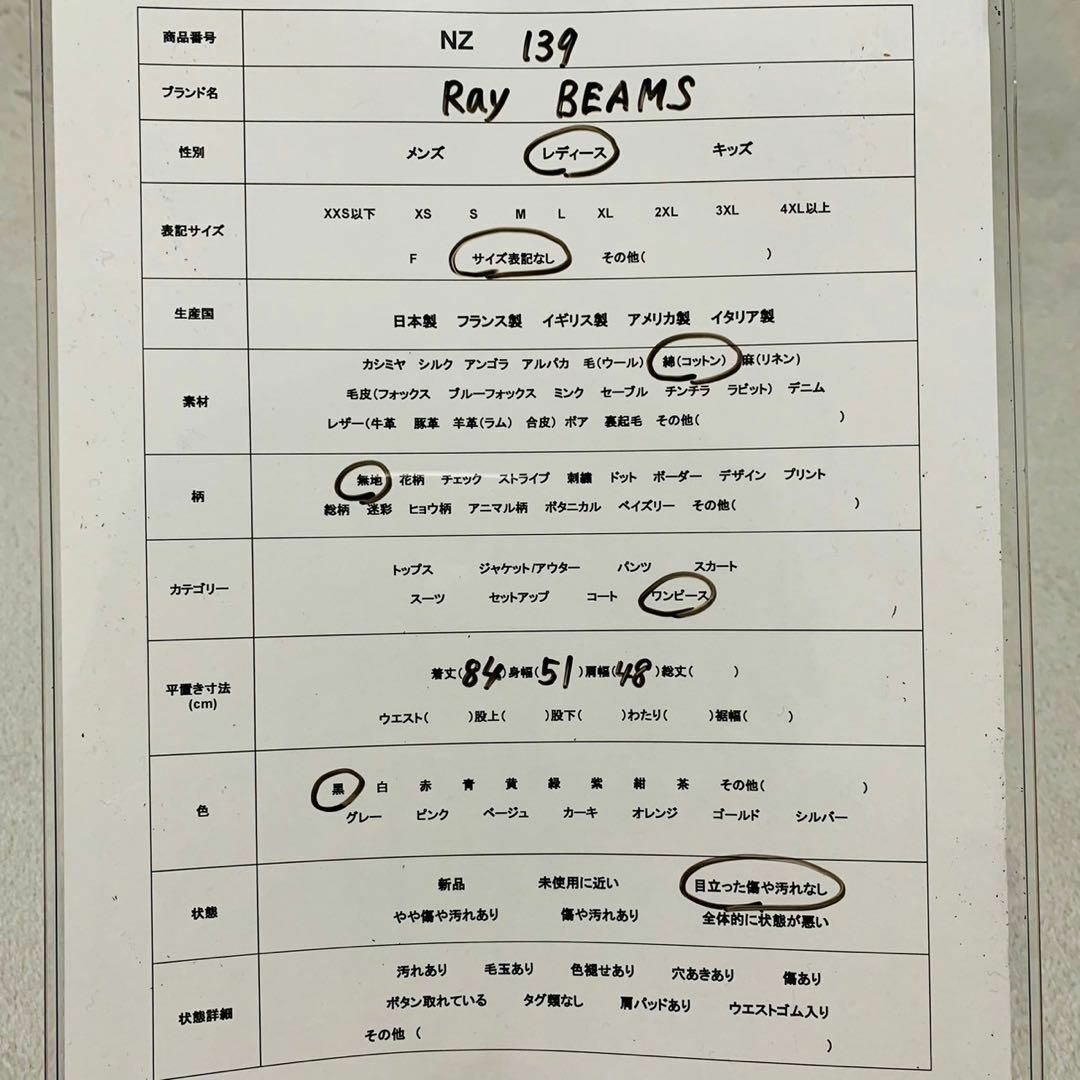 商品番号 NZ 139
ブランド名 Ray BEAMS
性別 メンズ レディース キッズ
表記サイズ XXS以下 XS S M L XL 2XL 3XL 4XL以上
F サイズ表記なし その他( )
生産国 日本製 フランス製 イギリス製 アメリカ製 イタリア製
素材 カシミヤ シルク アンゴラ アルパカ 毛(ウール) 綿(コットン) 麻(リネン)
毛皮(フォックス ブルーフォックス ミンク セーブル チンチラ ラビット) デニム
レザー(牛革 豚革 羊革(ラム) 合皮) ボア 裏起毛 その他( )
柄 無地 花柄 チェック ストライプ 刺繍 ドット ボーダー デザイン プリント
総柄 迷彩 ヒョウ柄 アニマル柄 ボタニカル ペイズリー その他( )
カテゴリー トップス ジャケット/アウター パンツ スカート
スーツ セットアップ コート ワンピース
平置き寸法 (cm) 着丈(84)身幅(51)肩幅(48)総丈( )
ウエスト( )股上( )股下( )わたり( )裾幅( )
色 黒 白 赤 青 黄 緑 紫 紺 茶 その他( )
グレー ピンク ベージュ カーキ オレンジ ゴールド シルバー
状態 新品 未使用に近い 目立った傷や汚れなし
やや傷や汚れあり 傷や汚れあり 全体的に状態が悪い
状態詳細 汚れあり 毛玉あり 色褪せあり 穴あきあり 傷あり
ボタン取れている タグ類なし 肩パッドあり ウエストゴム入り
その他 ( )